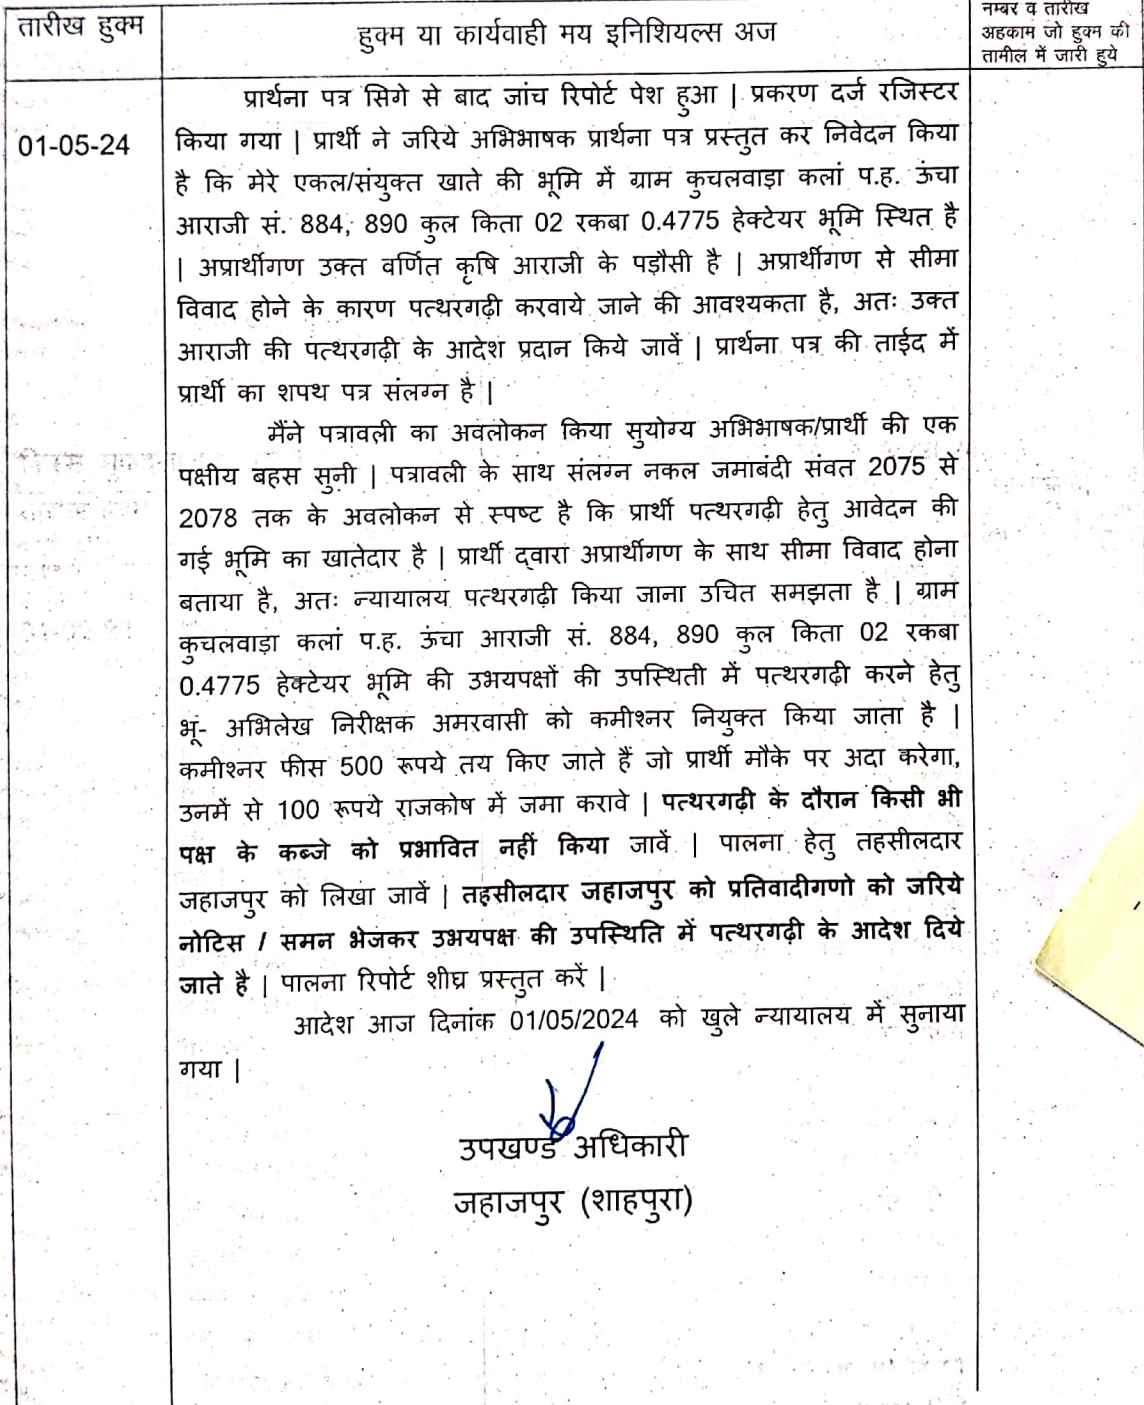 तारीख हुक्म
हुक्म या कार्यवाही मय इनिशियल्स अज
नम्बर व तारीख
अहकाम जो हुक्म की
तामील में जारी हुये
01-05-24
प्रार्थना पत्र सिगे से बाद जांच रिपोर्ट पेश हुआ | प्रकरण दर्ज रजिस्टर
किया गया | प्रार्थी ने जरिये अभिभाषक प्रार्थना पत्र प्रस्तुत कर निवेदन किया
है कि मेरे एकल/संयुक्त खाते की भूमि में ग्राम कुचलवाड़ा कलां प.ह. ऊंचा
आराजी सं. 884, 890 कुल किता 02 रकबा 0.4775 हेक्टेयर भूमि स्थित है
| अप्रार्थीगण उक्त वर्णित कृषि आराजी के पड़ौसी है | अप्रार्थीगण से सीमा
विवाद होने के कारण पत्थरगढ़ी करवाये जाने की आवश्यकता है, अतः उक्त
आराजी की पत्थरगढ़ी के आदेश प्रदान किये जावें | प्रार्थना पत्र की ताईद में
प्रार्थी का शपथ पत्र संलग्न है |
मैंने पत्रावली का अवलोकन किया सुयोग्य अभिभाषक/प्रार्थी की एक
पक्षीय बहस सुनी | पत्रावली के साथ संलग्न नकल जमाबंदी संवत 2075 से
2078 तक के अवलोकन से स्पष्ट है कि प्रार्थी पत्थरगढ़ी हेतु आवेदन की
गई भूमि का खातेदार है | प्रार्थी द्वारा अप्रार्थीगण के साथ सीमा विवाद होना
बताया है, अतः न्यायालय पत्थरगढ़ी किया जाना उचित समझता है | ग्राम
कुचलवाड़ा कलां प.ह. ऊंचा आराजी सं. 884, 890 कुल किता 02 रकबा
0.4775 हेक्टेयर भूमि की उभयपक्षों की उपस्थिती में पत्थरगढ़ी करने हेतु
भू- अभिलेख निरीक्षक अमरवासी को कमीश्नर नियुक्त किया जाता है |
कमीश्नर फीस 500 रूपये तय किए जाते हैं जो प्रार्थी मौके पर अदा करेगा,
उनमें से 100 रूपये राजकोष में जमा करावे | पत्थरगढ़ी के दौरान किसी भी
पक्ष के कब्जे को प्रभावित नहीं किया जावें | पालना हेतु तहसीलदार
जहाजपुर को लिखा जावें | तहसीलदार जहाजपुर को प्रतिवादीगणो को जरिये
नोटिस / समन भेजकर उभयपक्ष की उपस्थिति में पत्थरगढ़ी के आदेश दिये
जाते है | पालना रिपोर्ट शीघ्र प्रस्तुत करें |
आदेश आज दिनांक 01/05/2024 को खुले न्यायालय में सुनाया
गया |
उपखण्ड अधिकारी
जहाजपुर (शाहपुरा)